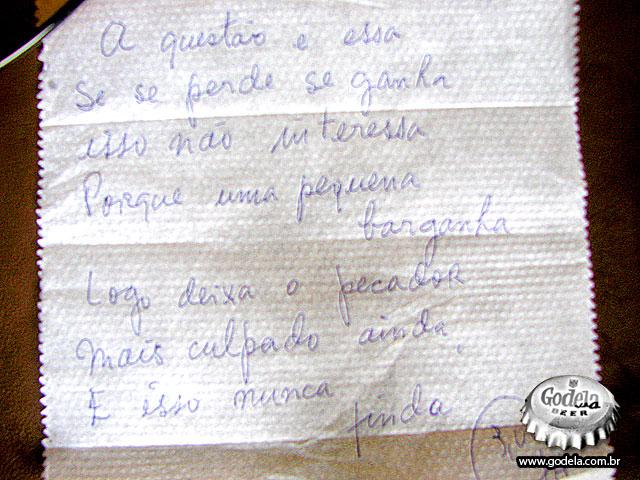 A questão e essa
Se se perde se ganha
isso não interessa
Porque uma pequena
barganha
Logo deixa o pecador
Mais culpado ainda,
E isso nunca
finda
Godela
BEER
www.godela.com.br